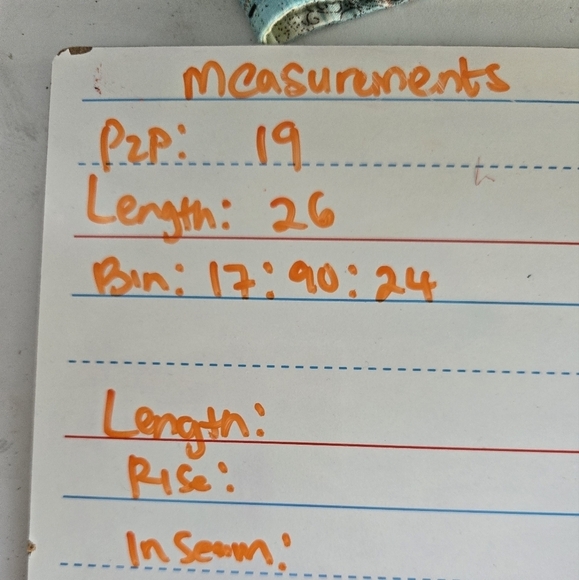 Measurements
P2P: 19
Length: 26
Bin: 17:90:24
Length:
Rise:
Inseam: